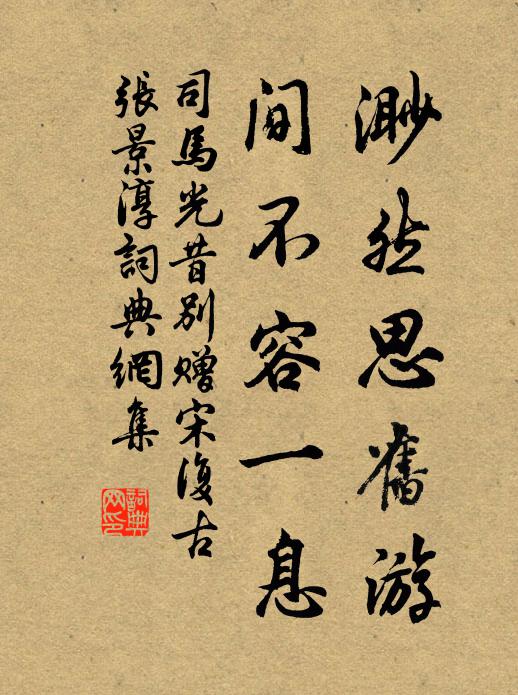 渺然思舊游
間不容一息
司馬光昔別贈宋復古
張景淳詞典網集
詞典网印